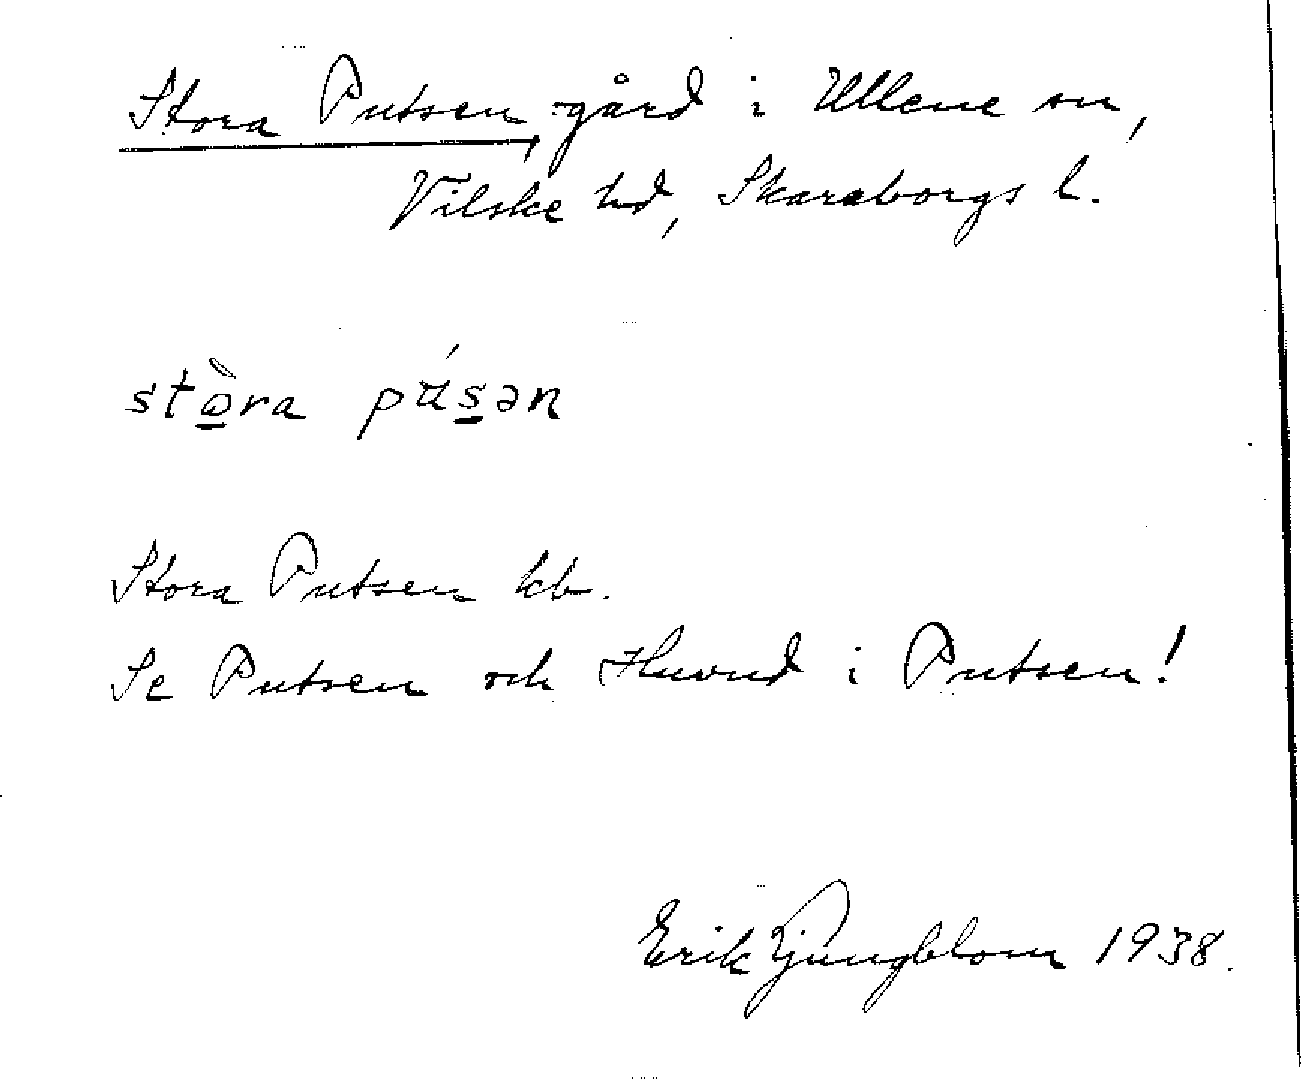 Stora Putsen, gård i Ullene sn,
Vilske hd, Skaraborgs l.
stò̲ra pu̇́s̲ən
Stora Putsen kb.
Se Putsen och Huvud i Putsen!
Erik Ljungblom 1938.